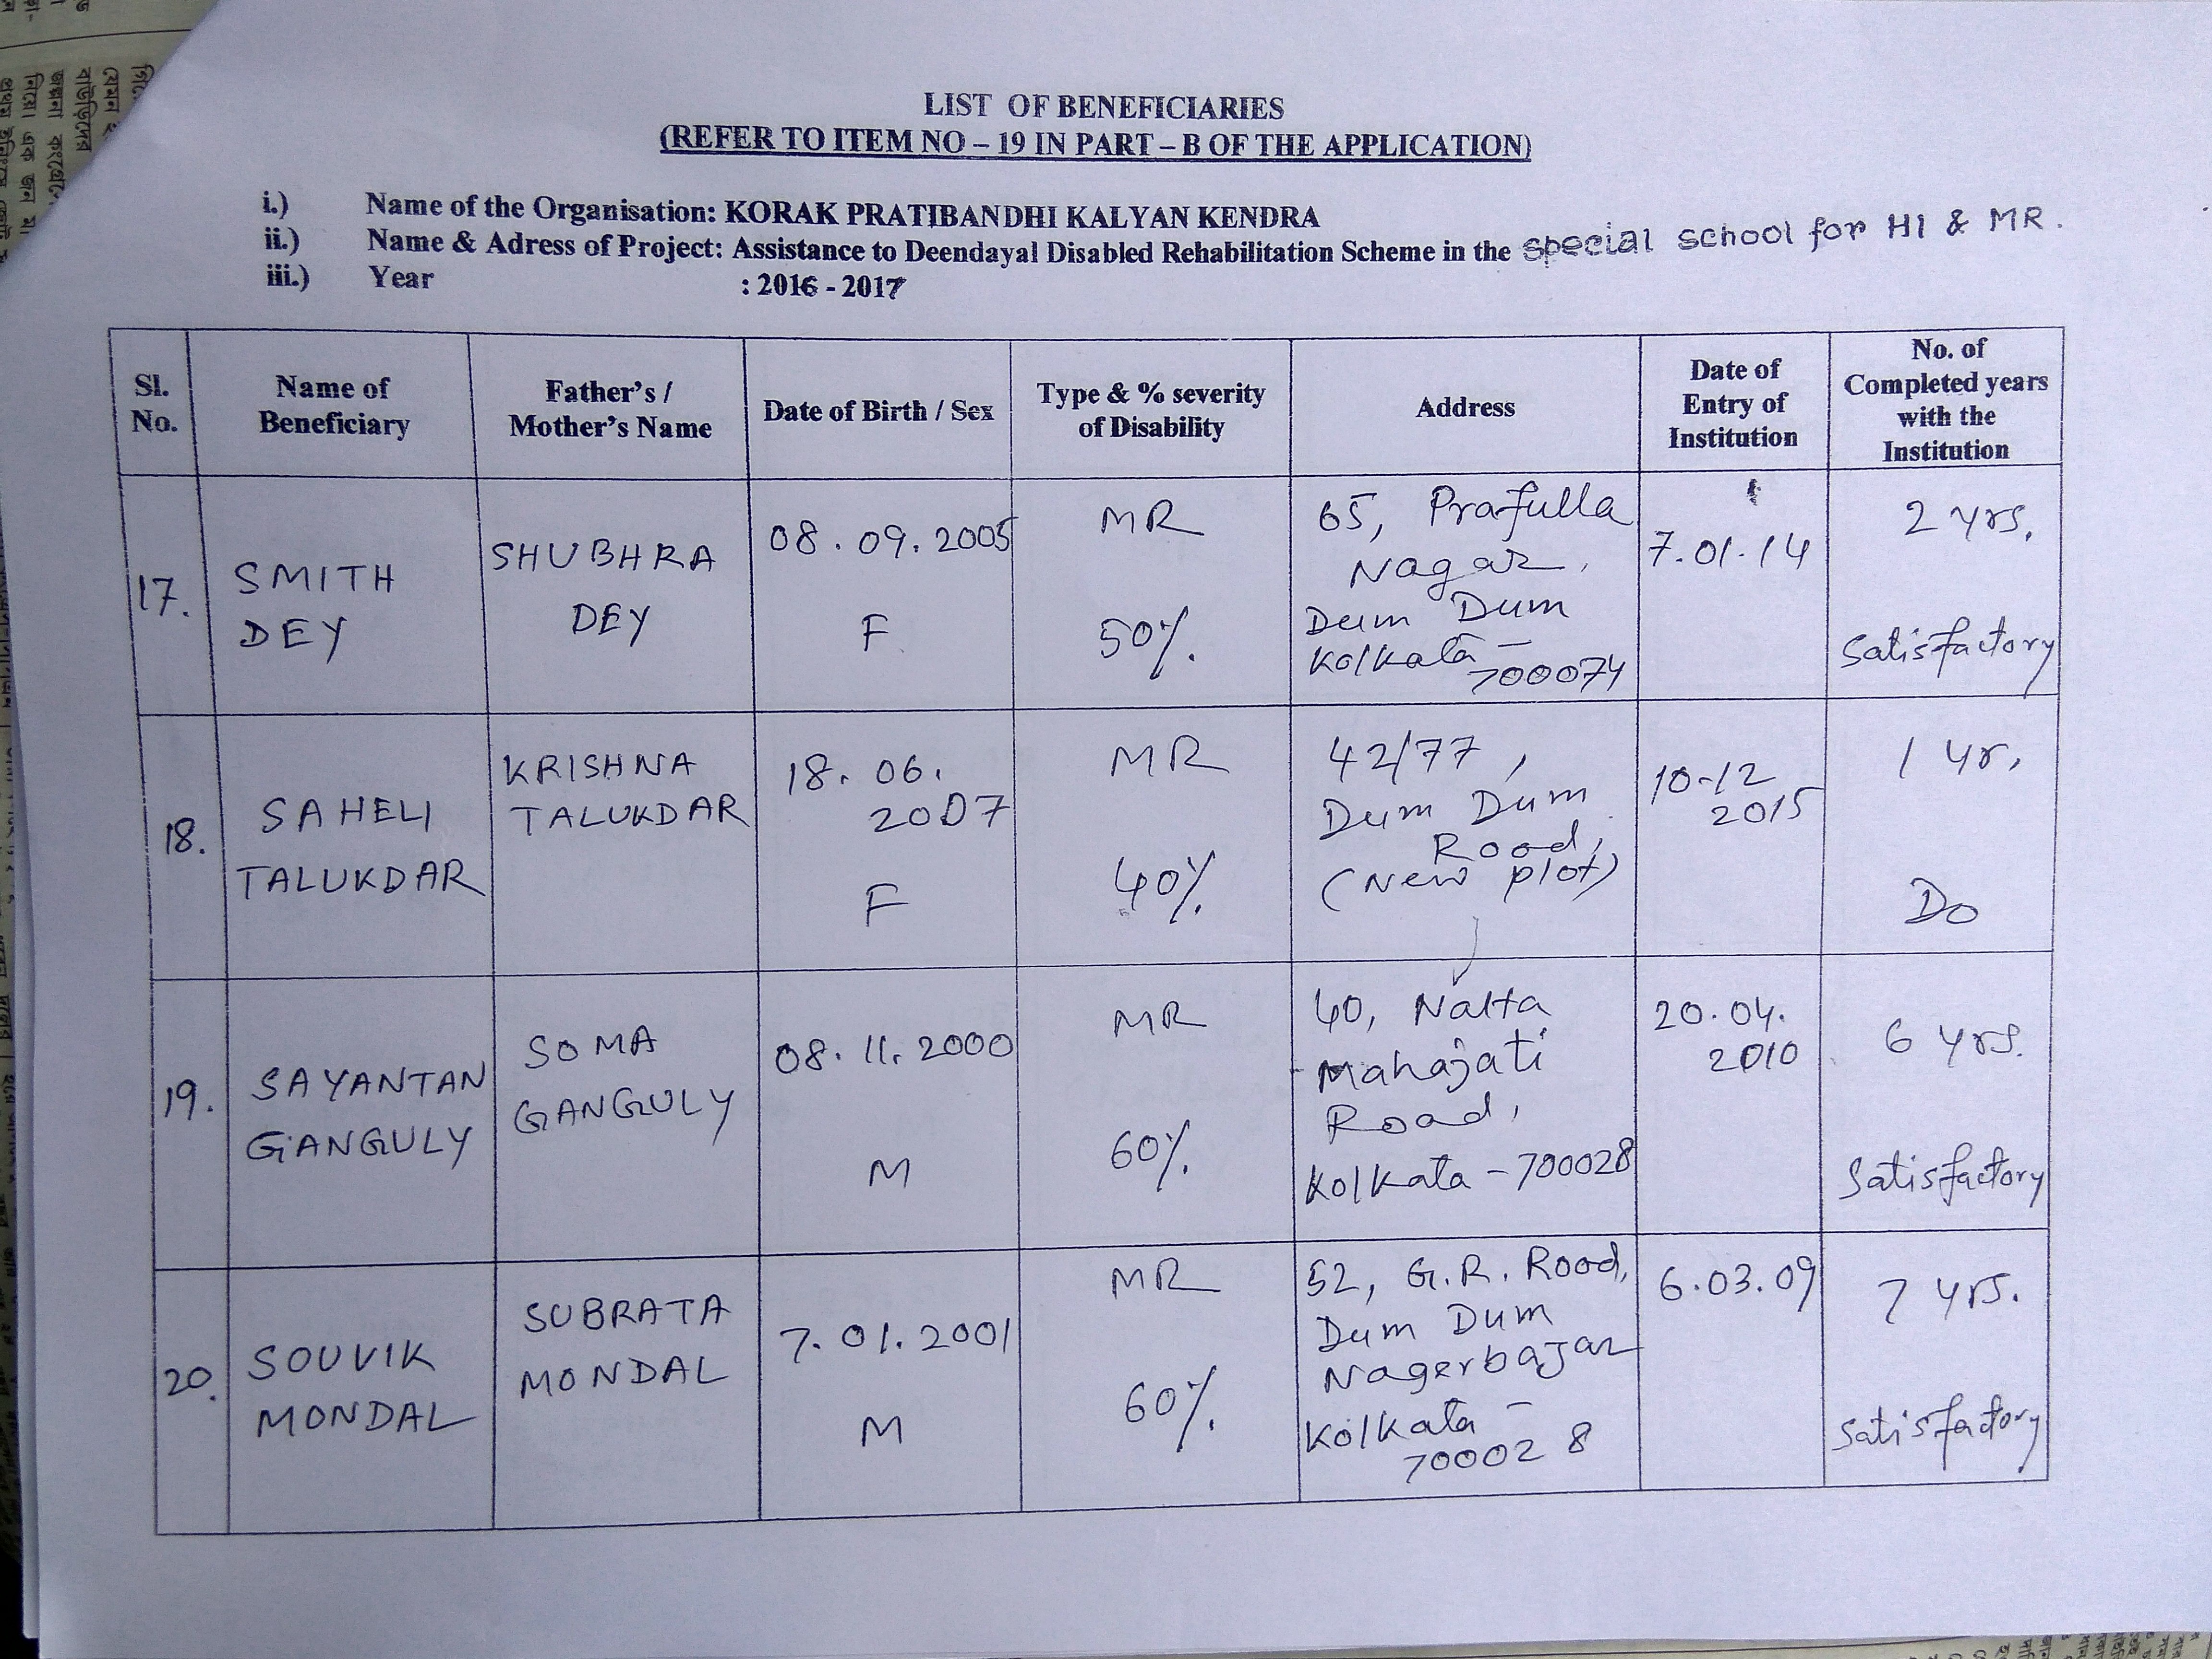 LIST OF BENEFICIARIES
(REFER TO ITEM NO – 19 IN PART – B OF THE APPLICATION)
i.) Name of the Organisation: KORAK PRATIBANDHI KALYAN KENDRA
ii.) Name & Adress of Project: Assistance to Deendayal Disabled Rehabilitation Scheme in the special school for HI & MR.
iii.) Year : 2016 - 2017
Sl.
No.
Name of
Beneficiary
Father's /
Mother's Name
Date of Birth / Sex
Type & % severity
of Disability
Address
Date of
Entry of
Institution
No. of
Completed years
with the
Institution
17.
SMITH
DEY
SHUBHRA
DEY
08.09.2005
F
MR
50%.
65, Prafulla
Nagar,
Dum Dum
Kolkata –
700074
7.01.14
2 yrs.
Satisfactory
18.
SAHELI
TALUKDAR
KRISHNA
TALUKDAR
18.06.
2007
F
MR
40%.
42/77,
Dum Dum
Road,
(New plot)
10-12
2015
1 yr.
Do
19.
SAYANTAN
GANGULY
SOMA
GANGULY
08.11.2000
M
MR
60%.
40, Nalta
Mahajati
Road,
Kolkata – 700028
20.04.
2010
6 yrs.
Satisfactory
20.
SOUVIK
MONDAL
SUBRATA
MONDAL
7.01.2001
M
MR
60%.
52, G.R. Road,
Dum Dum
Nagerbajar
Kolkata –
700028
6.03.09
7 yrs.
Satisfactory